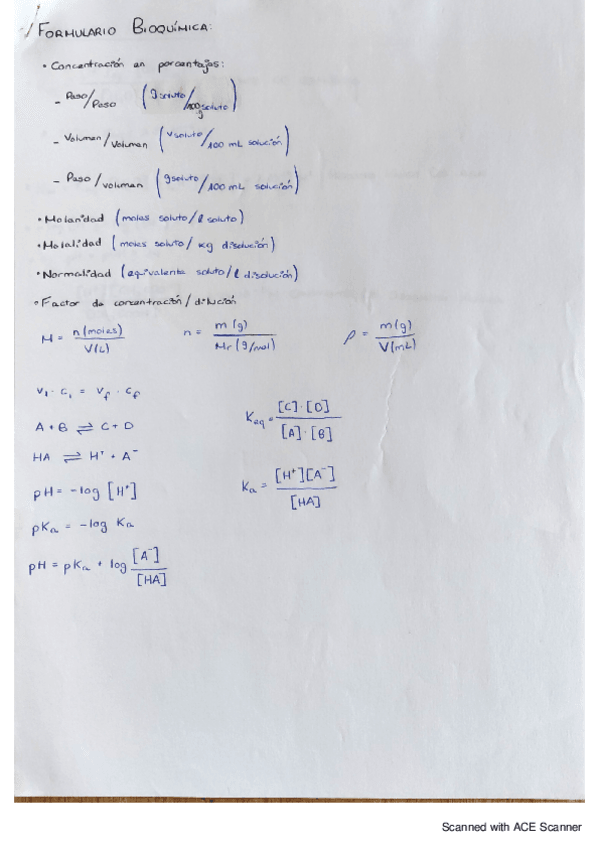 FORMULARIO BIOQUÍMICA:
• Concentración en porcentajes:
- Peso/Peso (g soluto/100 g soluto)
- Volumen/Volumen (v soluto/100 mL solución)
- Peso/volumen (g soluto/100 mL solución)
• Molaridad (moles soluto/l soluto)
• Molalidad (moles soluto/kg disolución)
• Normalidad (equivalente soluto/l disolución)
• Factor de concentración/dilución
M = n(moles)/V(L)   n = m(g)/Mr(g/mol)   ρ = m(g)/V(mL)
Vi · Ci = Vf · Cf
A + B ⇌ C + D   Keq = [C]·[D]/[A]·[B]
HA ⇌ H⁺ + A⁻   Ka = [H⁺][A⁻]/[HA]
pH = -log [H⁺]
pKa = -log Ka
pH = pKa + log [A⁻]/[HA]
Scanned with ACE Scanner